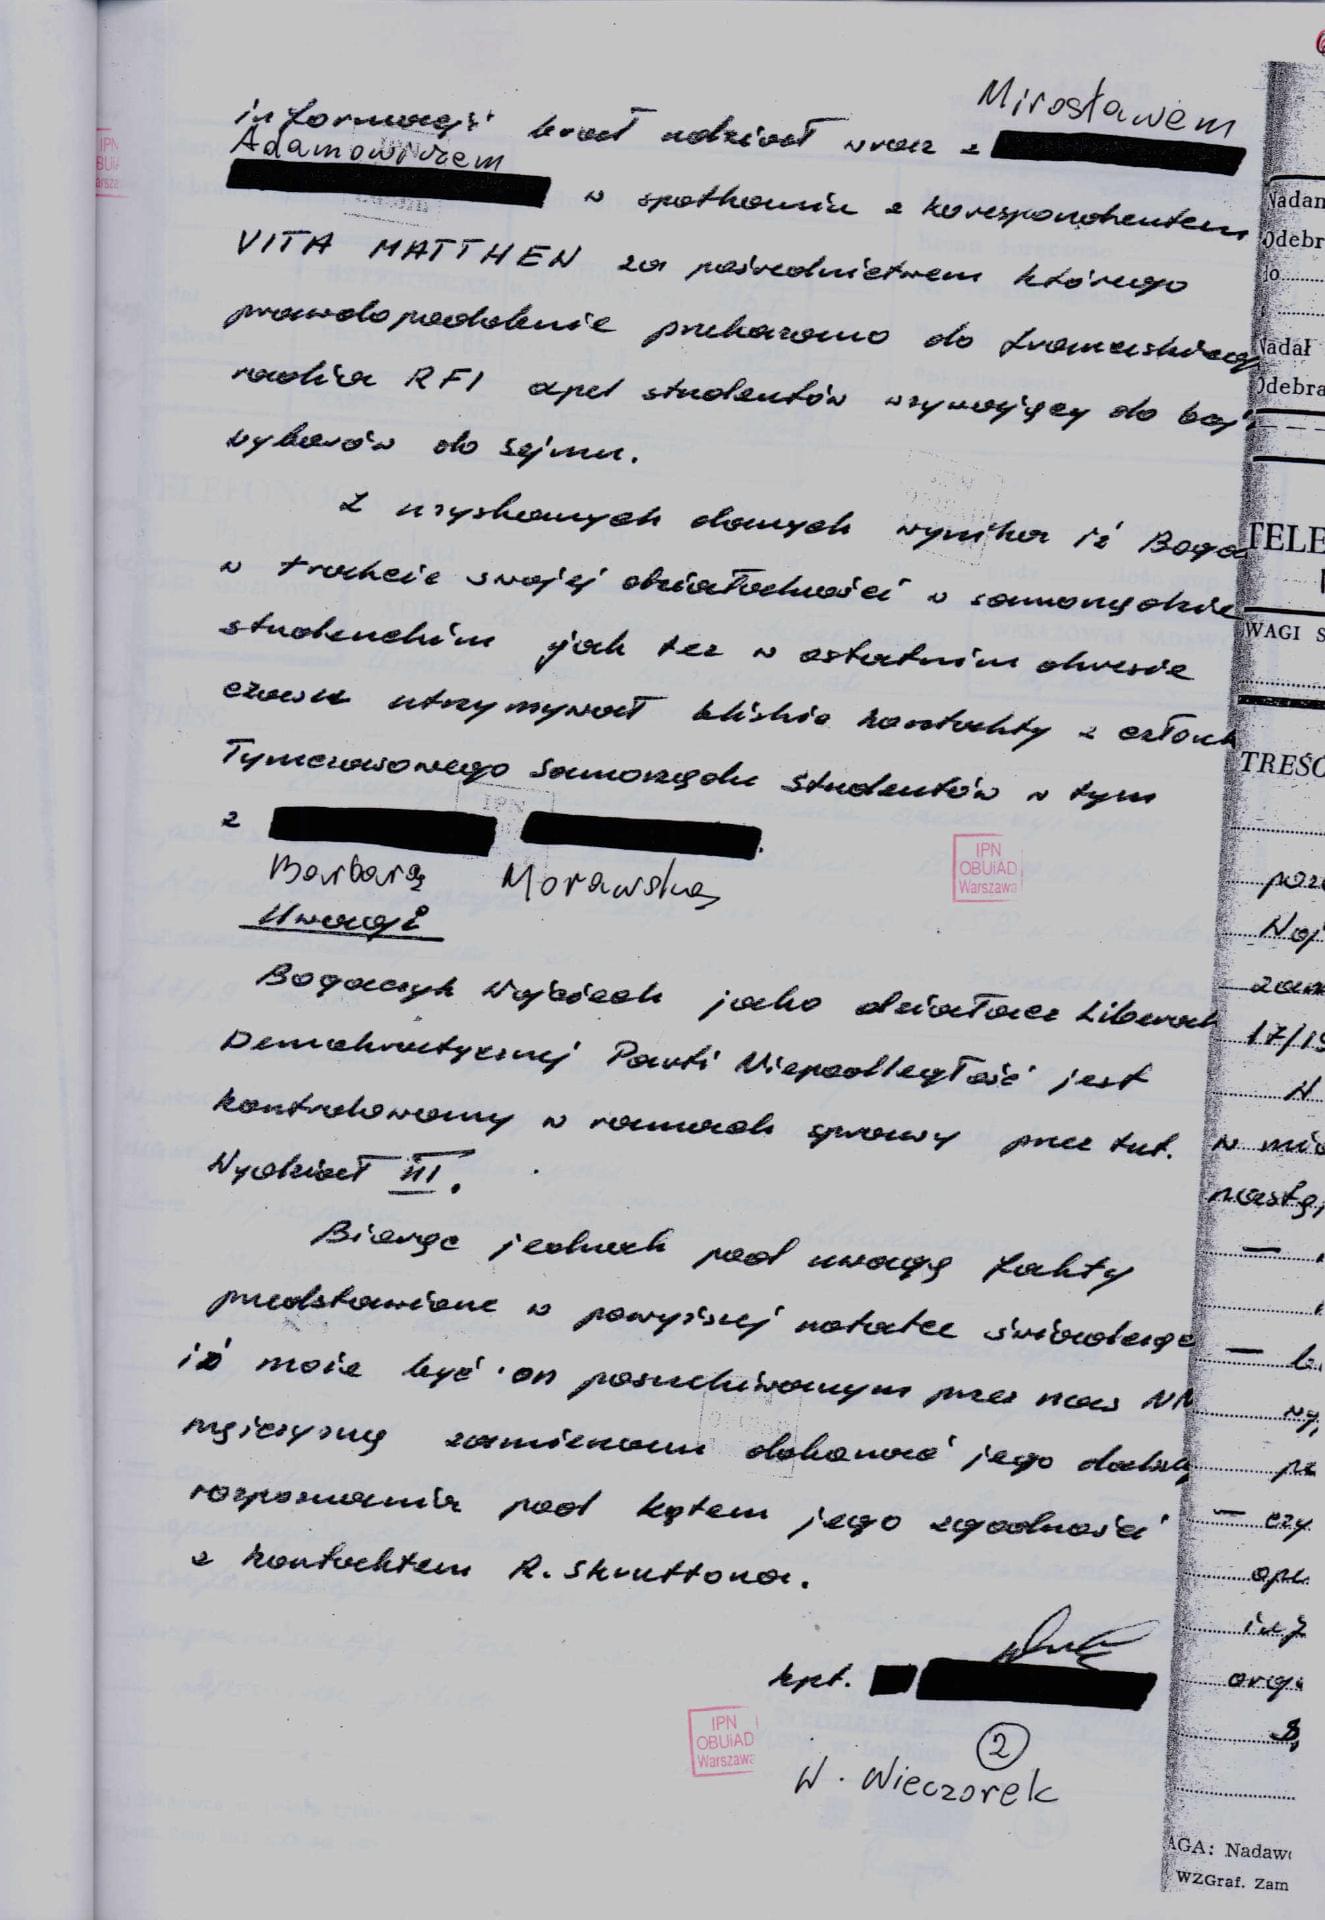 Mirosławem
informacji brał udział wraz z
Adamowiczem
w spotkaniu z korespondentem
VITA MATTHEN za pośrednictwem którego
prawdopodobnie przekazano do francuskiego
radia RFI apel studentów wzywający do boj
wyborów do sejmu.
Z uzyskanych danych wynika iż Boga
w trakcie swojej działalności w samorządzie
studenckim jak też w ostatnim okresie
czasu utrzymywał bliskie kontakty z członk
Tymczasowego Samorządu Studentów w tym
z
Barbarą Morawską
Uwagi
Bogaczyk Wojciech jako działacz Liberal
Demokratycznej Parti Niepodległość jest
kontrolowany w ramach sprawy przez tut.
Wydział III.
Biorąc jednak pod uwagę fakty
przedstawione w powyższej notatce świadczące
iż może być on poszukiwanym przez nas NN
mężczyzną zamierzam dokonać jego dalszeg
rozpoznania pod kątem jego zgodności
z kontaktem R. Skruttona.
kpt.
2
W. Wieczorek
IPN
OBUiAD
Warszawa
IPN
OBUiAD
Warszawa
Nadan
Odebr
do
Nadał
Odebra
TELE
WAGI S
TREŚĆ
17/19
czy
AGA: Nadawc
WZGraf. Zam